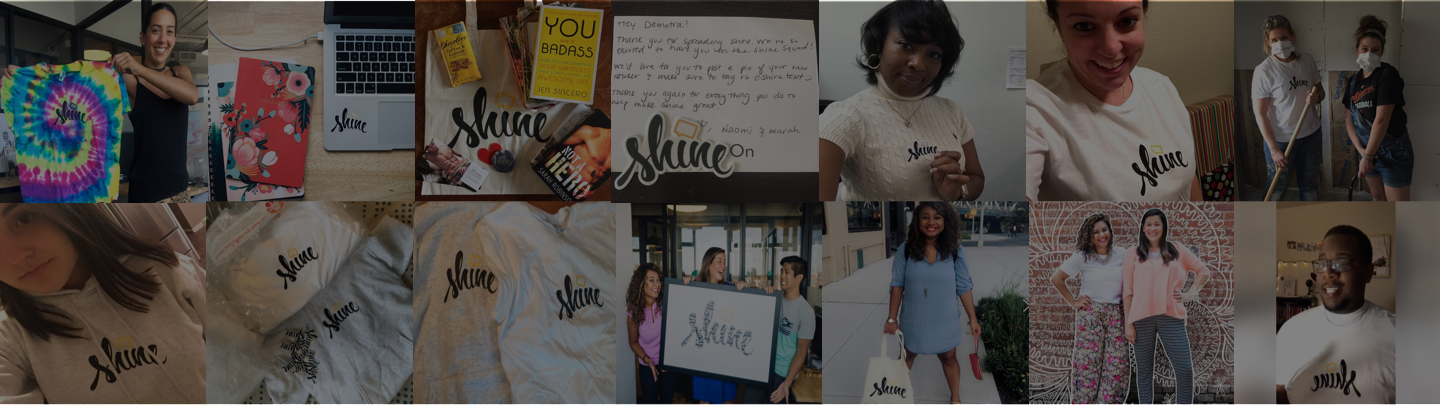 shine
shine
YOU
BADASS
AWESOME LIFE
JEN SINCERO
shine
NOT
HERE
Hey Demetra!
Thank you for spreading shine. We're so
excited to have you on the shine squad!
We'd love for you to post a pic of your new
sticker & make sure to tag us @shinetext :)
Thank you again for everything you do to
help make shine great
Naomi & Marah
shine On
shine
shine
shine
shine
shine
shine
shine
shine
shine
shine
shine